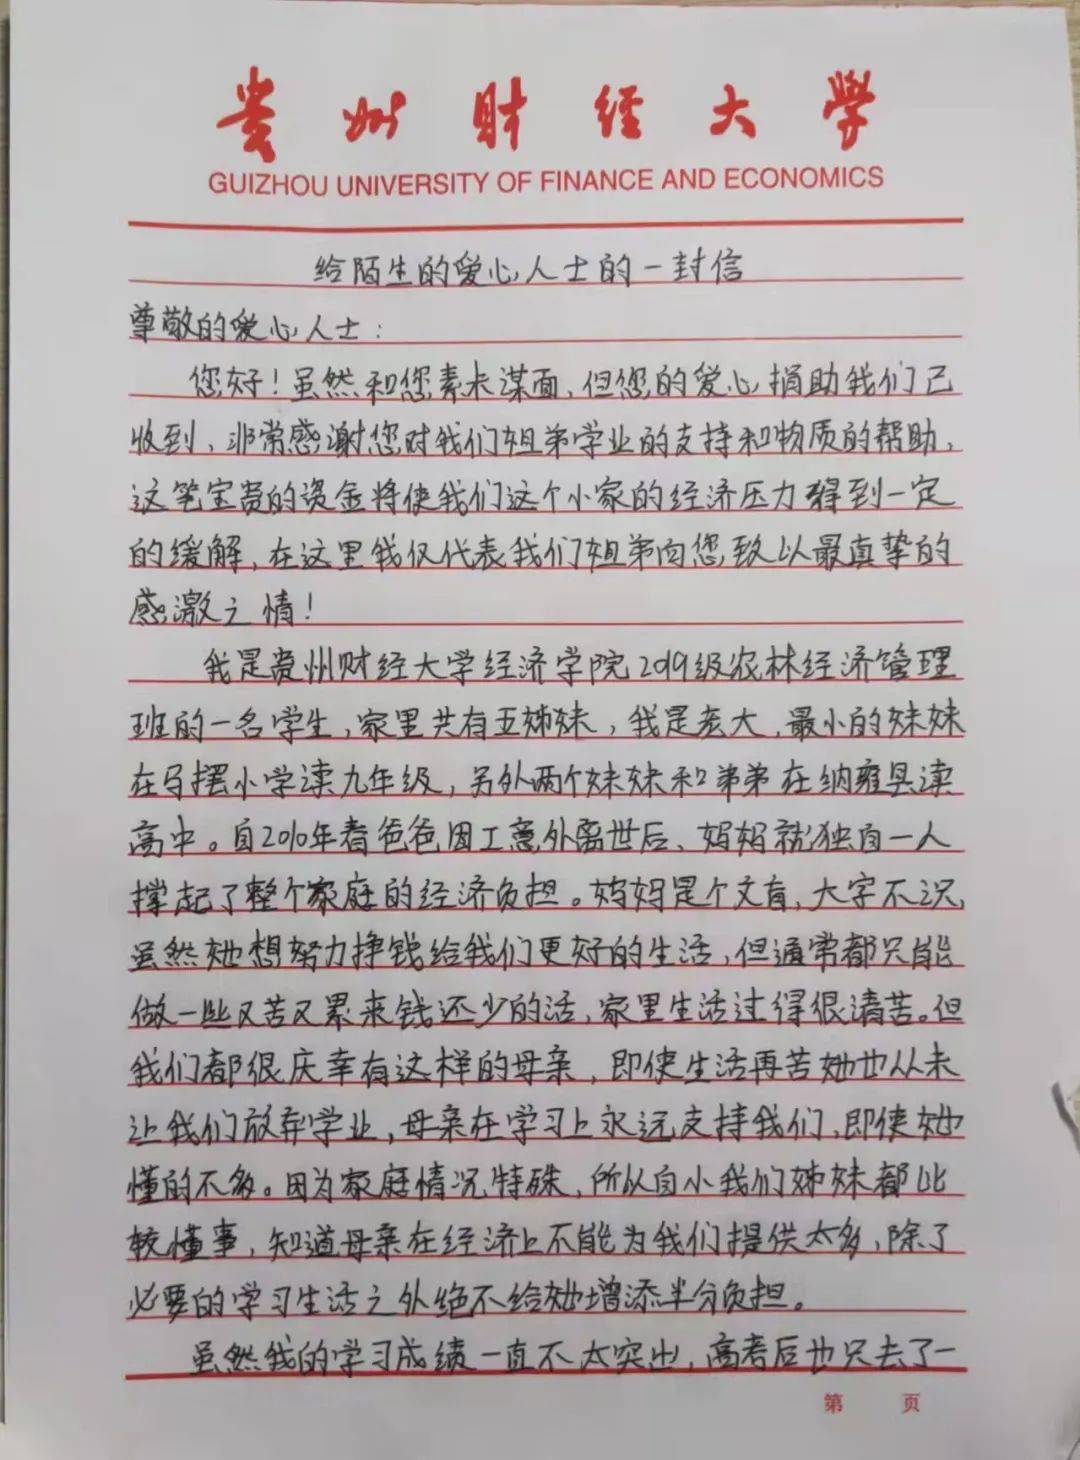 贵州财经大学
GUIZHOU UNIVERSITY OF FINANCE AND ECONOMICS
给陌生的爱心人士的一封信
尊敬的爱心人士：
您好！虽然和您素未谋面，但您的爱心捐助我们已
收到，非常感谢您对我们姐弟学业的支持和物质的帮助，
这笔宝贵的资金将使我们这个小家的经济压力得到一定
的缓解，在这里我仅代表我们姐弟向您致以最真挚的
感激之情！
我是贵州财经大学经济学院2019级农林经济管理
班的一名学生，家里共有五姊妹，我是老大，最小的妹妹
在马摆小学读九年级，另外两个妹妹和弟弟在纳雍县读
高中。自2010年春爸爸因工意外离世后、妈妈就独自一人
撑起了整个家庭的经济负担。妈妈是个文盲，大字不识，
虽然她想努力挣钱给我们更好的生活，但通常都只能
做一些又苦又累来钱还少的活，家里生活过得很清苦。但
我们都很庆幸有这样的母亲，即使生活再苦她也从未
让我们放弃学业，母亲在学习上永远支持我们，即使她
懂的不多。因为家庭情况特殊，所以自小我们姊妹都比
较懂事，知道母亲在经济上不能为我们提供太多，除了
必要的学习生活之外绝不给她增添半分负担。
虽然我的学习成绩一直不太突出，高考后也只去了一
第 页